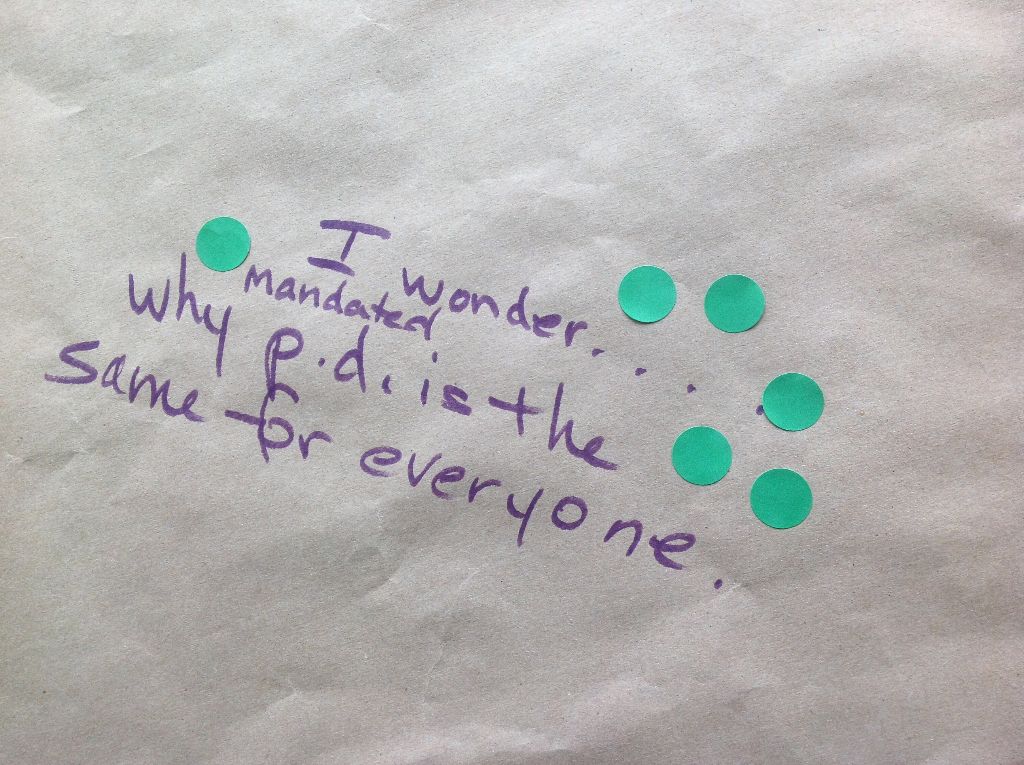 I wonder....
mandated
Why p.d. is the
same for everyone.